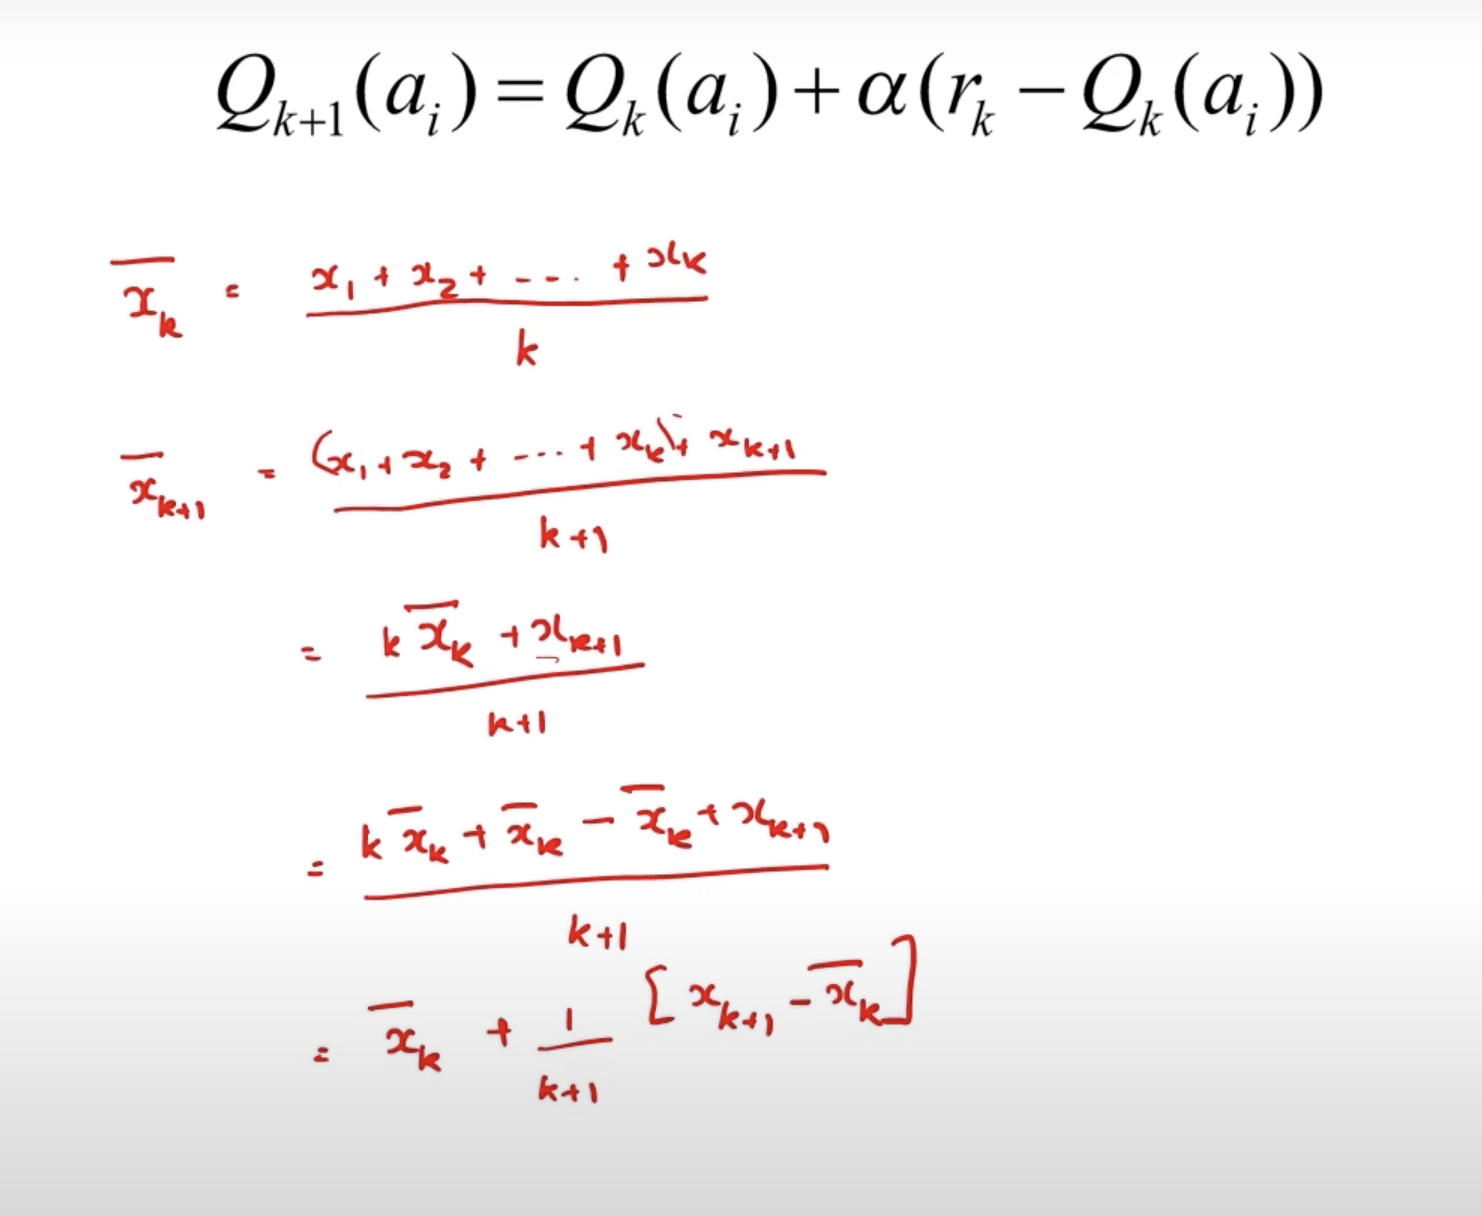 Q_{k+1}(a_i) = Q_k(a_i) + α(r_k − Q_k(a_i))
x̄_k = (x_1 + x_2 + ---- + x_k) / k
x̄_{k+1} = ((x_1 + x_2 + --- + x_k) + x_{k+1}) / (k+1)
= (k x̄_k + x_{k+1}) / (k+1)
= (k x̄_k + x̄_k − x̄_k + x_{k+1}) / (k+1)
= x̄_k + 1/(k+1) [x_{k+1} − x̄_k]